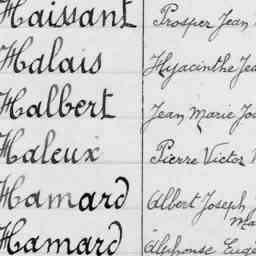 Haissant Prosper Jean
Halais Hyacinthe Jea
Halbert Jean Marie Jos
Haleux Pierre Victor
Hamard Albert Joseph
Ma
Hamard Alphonse Eugè